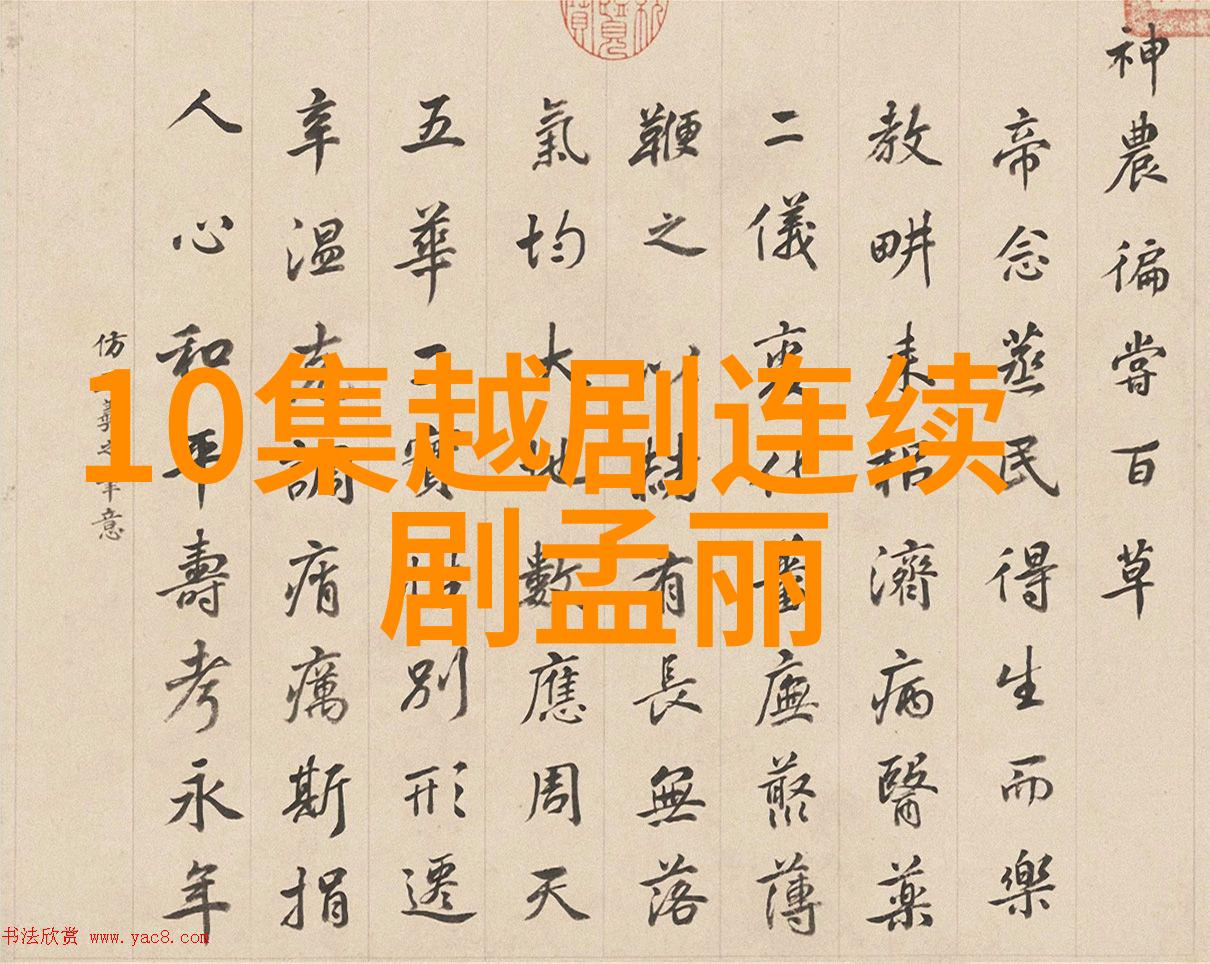 10集越剧连续
剧孟丽
神農徧嘗百草
帝念蒸民得生而樂
教畊耒耜濟病醫藥
二儀廡藂薄
鞭之以有長無落
氣均大地數應周天
五華二寶別形遷
辛温調痟癘斯捐
人心和平壽考永年
仿筆意
书法欣赏 www.yac8.com